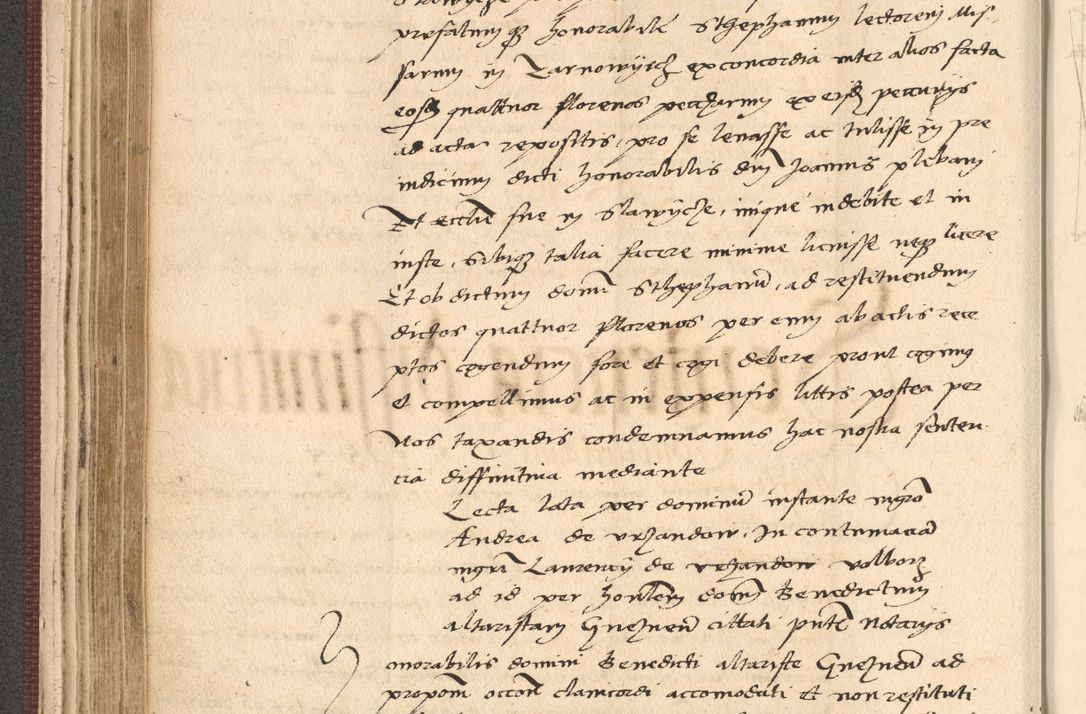 prefatumq honorabilē Sthephanum lectorem Mis
sarum in Tarnowijech ex concordia inter alios facta
eosdē quattuor florenos pecuniarum ex eisdē pecunijs
ad acta repositis, pro se levasse ac tulisse in pre
iudicium dicti honorabilis dnī Joannis plebani
Et ecclīe sue in Slawijcze, inique indebite et in
iuste, sibiq talia facere minime licuisse neq licere
Et ob dictum domī Sthephanū, ad restituendum
dictos quattuor florenos per eum ab actis rece
ptos cogendum fore et cogi debere prout cogimus
et compellimus ac in expensis littis postea per
nos taxandis condemnamus hac nostra senten
cia diffinitiva mediante
Lecta lata per dominū instante mgrō
Andrea de Vrzandow, In contumaciā
mgrī Laurencij de Vrzandow Volborz
ad id per honlem domī Benedictum
altaristam Gneznen̄ cittati pn̄te Notarijs
onorabilis domini Benedicti altariste Gneznen̄ ad
propoīm occōne clavicordi accomodati et non restituti